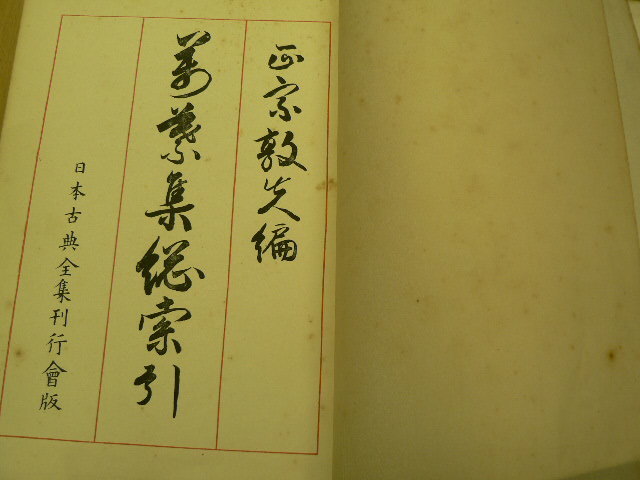 正宗敦夫編
萬葉集総索引
日本古典全集刊行會版